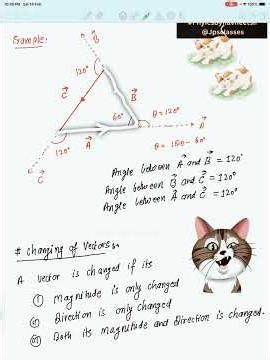 10:30 PM Sat 18 Feb
100%
@Jpsclasses
Example:
B
120°
C
60°
B
θ = 120°
A
A
θ = 180 - 60°
120°
C
Angle between A and B = 120°
Angle between B and C = 120°
Angle between A and C = 120°
# Changing of Vectors:
A vector is changed if its
(i) Magnitude is only changed
(ii) Direction is only changed
(iii) Both its magnitude and Direction is changed.